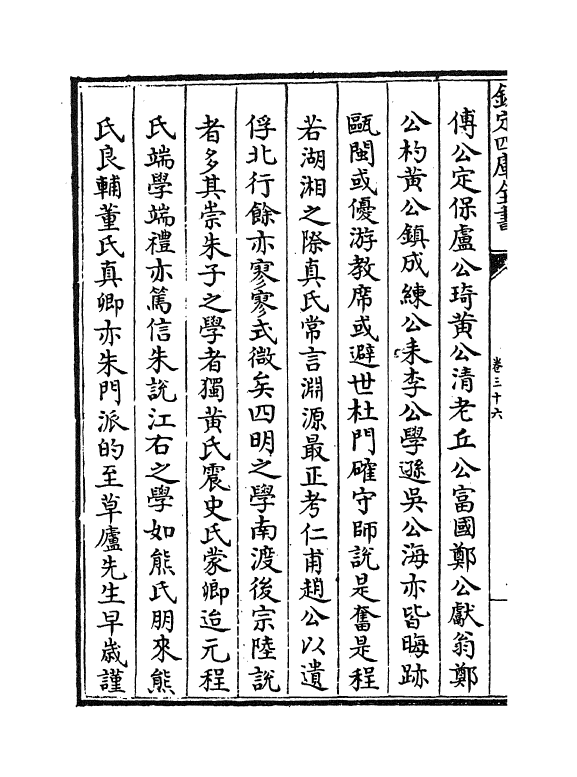 欽定四庫全書
卷三十六
傅公定保盧公琦黄公清老丘公富國鄭公獻翁鄭
公杓黄公鎮成練公耒李公學遜吳公海亦皆晦跡
甌閩或優游教席或避世杜門確守師說是奮是程
若湖湘之際真氏常言淵源最正考仁甫趙公以遺
俘北行餘亦寥寥式微矣四明之學南渡後宗陸說
者多其崇朱子之學者獨黄氏震史氏蒙卿迨元程
氏端學端禮亦篤信朱說江右之學如熊氏朋來熊
氏良輔董氏真卿亦朱門派的至草廬先生早歲謹